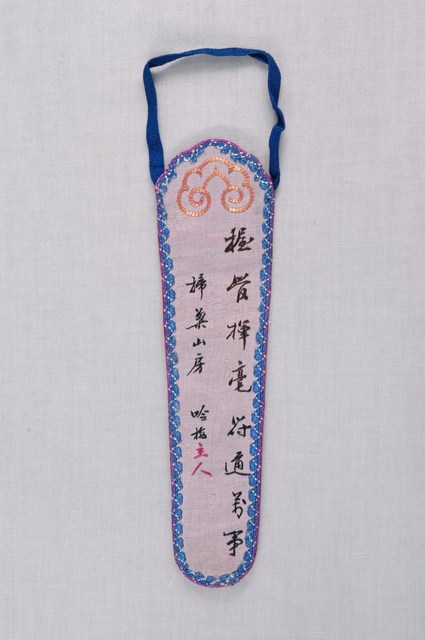 握管揮毫 іх通萬事
掃葉山房 吟梅主人